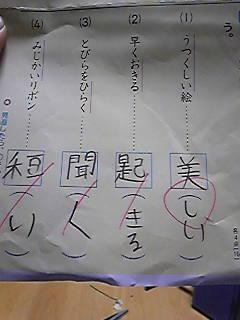 う。
(1) うつくしい絵……美(しい)
(2) 早くおきる……起(きる)
(3) とびらをひらく……聞(く)
(4) みじかいリボン……(い)